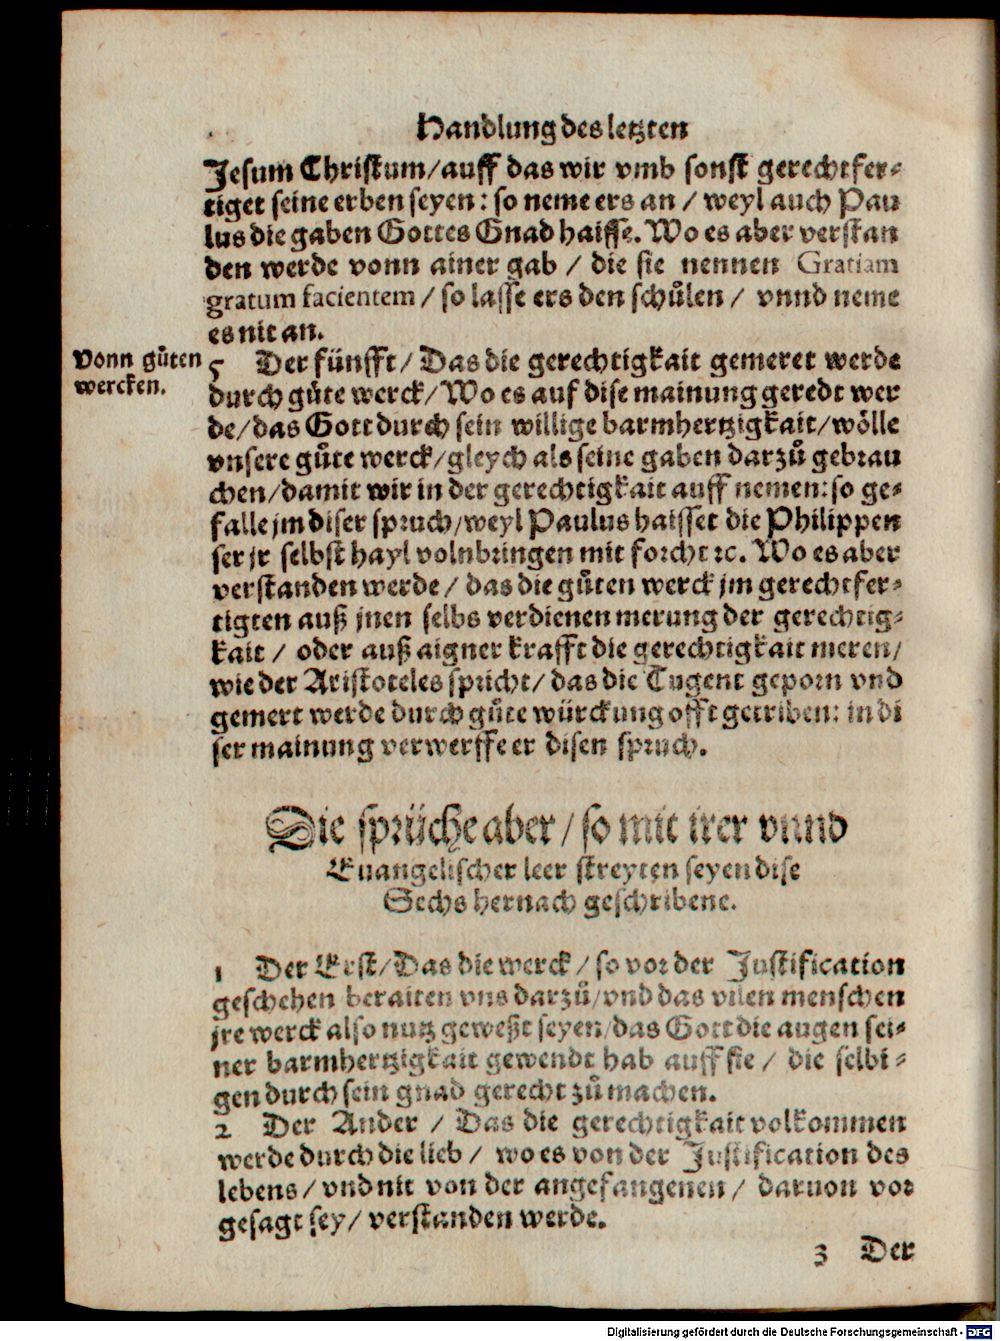 Handlung des letzten
Jesum Christum/auff das wir vmb sonst gerechtfer-
tiget seine erben seyen: so neme ers an / weyl auch Pau
lus die gaben Gottes Gnad haisse. Wo es aber verstan
den werde vonn ainer gab / die sie nennen Gratiam
gratum facientem / so lasse ers den schůlen / vnnd neme
es nit an.
Vonn gůten
wercken.
5 Der fünfft/ Das die gerechtigkait gemeret werde
durch gůte werck/ Wo es auf dise mainung geredt wer
de/das Gott durch sein willige barmhertzigkait/wölle
vnsere gůte werck/gleych als seine gaben darzů gebrau
chen/damit wir in der gerechtigkait auff nemen: so ge-
falle jm diser spruch/weyl Paulus haisset die Philippen
ser jr selbst hayl volnbringen mit forcht ꝛc. Wo es aber
verstanden werde / das die gůten werck jm gerechtfer-
tigten auß jnen selbs verdienen merung der gerechtig-
kait / oder auß aigner krafft die gerechtigkait meren/
wie der Aristoteles spricht/ das die Tugent geporn vnd
gemert werde durch gůte würckung offt getriben: in di
ser mainung verwerffe er disen spruch.
Die sprüche aber / so mit irer vnnd
Euangelischer leer streyten seyen dise
Sechs hernach geschribene.
1 Der Erst/ Das die werck / so vor der Justification
geschehen beraiten vns darzů/vnd das vilen menschen
jre werck also nutz geweßt seyen/das Gott die augen sei-
ner barmhertzigkait gewendt hab auff sie / die selbi-
gen durch sein gnad gerecht zů machen.
2 Der Ander / Das die gerechtigkait volkommen
werde durch die lieb / wo es von der Justification des
lebens / vnd nit von der angefangenen / daruon vor
gesagt sey/ verstanden werde.
3 Der
Digitalisierung gefördert durch die Deutsche Forschungsgemeinschaft - DFG